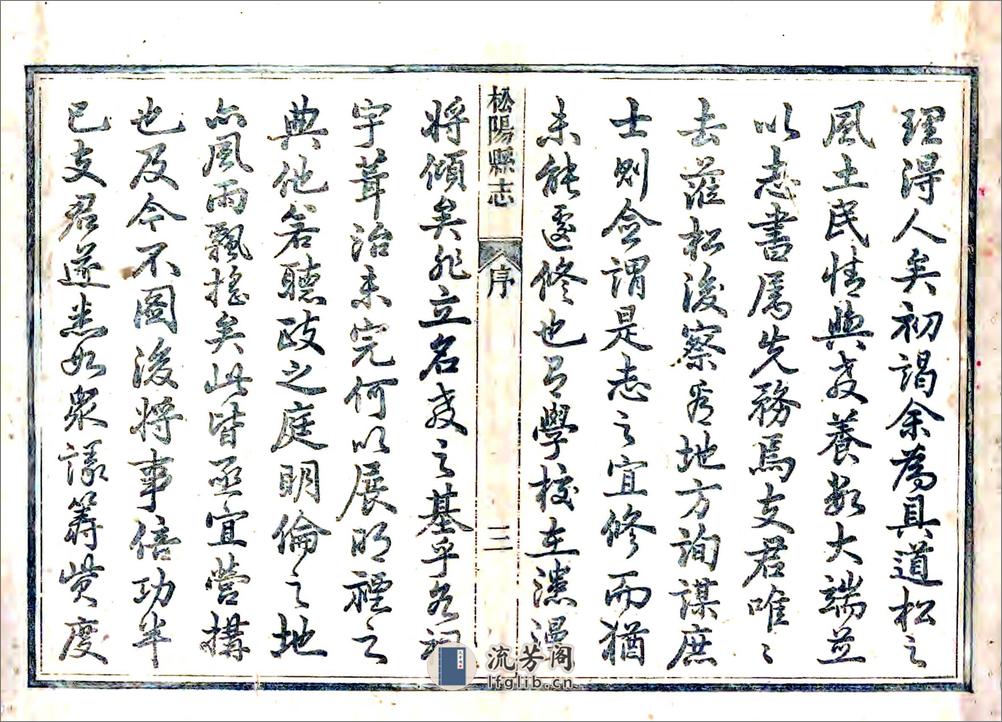 理得人矣初謁余為具道松之
風土民情與夫教養數大端並
以志書屬先務焉支君唯〻
去蒞松後察看地方詢謀庶
士則僉謂是志之宜修而猶
未能遽修也有學校在濃漫
松陽縣志
序
三
將傾矣非立名教之基乎各祠
宇葺治未完何以展明禋之
典他若聽政之庭明倫之地
亦風雨飄搖矣此皆亟宜營構
也及今不圖後將事倍功半
已支君遂悉如眾議籌貲度
流芳阁
lfglib.cn